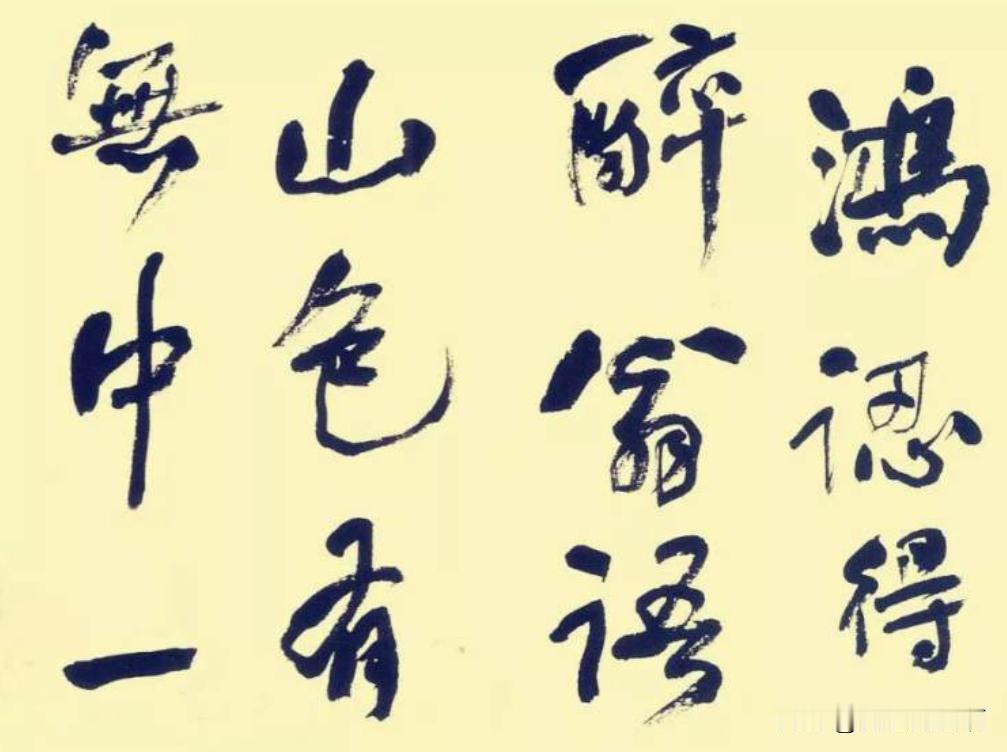 鴻認得
醉翁語
山色有
無中一